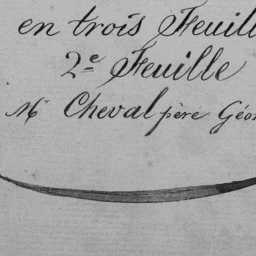 en trois Feuill
2e Feuille
Mr Cheval père Géo